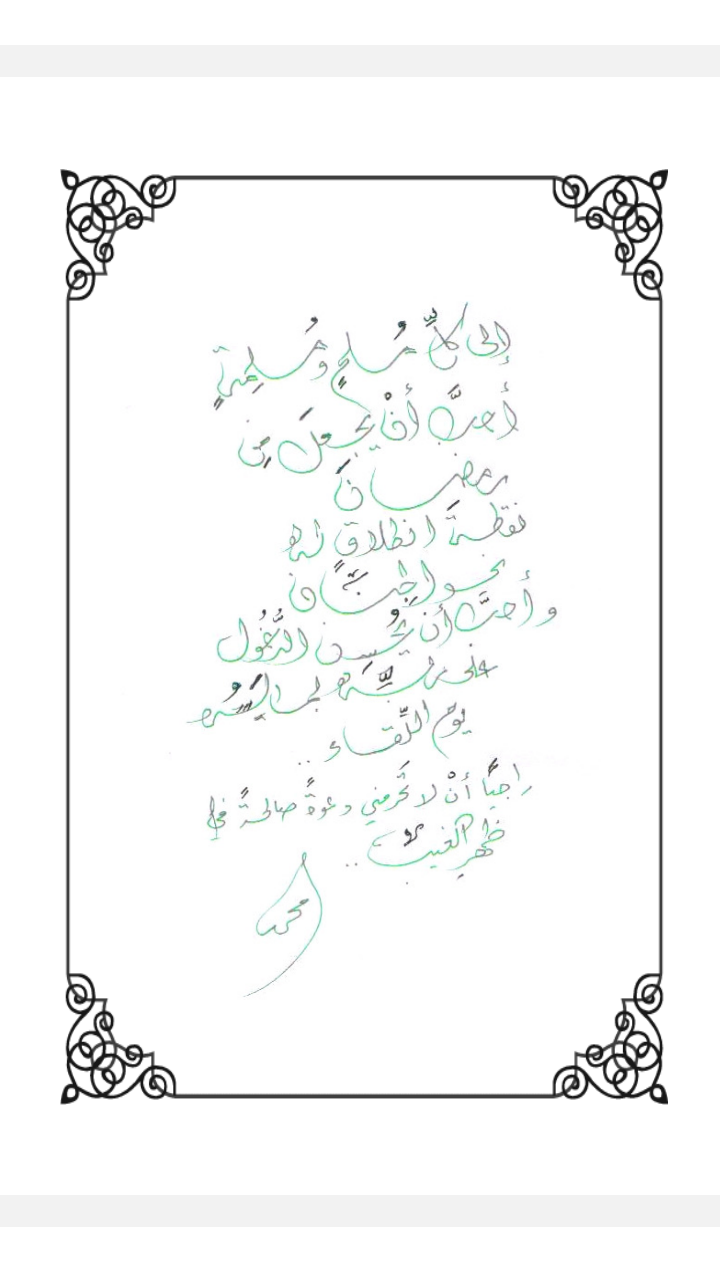 إلى كلِّ مُسلمٍ ومُسلِمةٍ
أحبَّ أنْ يجعلَ مِن
رمضانَ
نقطةَ انطلاقٍ له
نحو الجِنان
وأحبَّ أن يُحسِنَ الدُّخُول
على ربِّه
يومَ اللِّقاء ..
راجياً أنْ لا تَحرمني دعوةً صالحةً في
ظهرِ الغيب ..